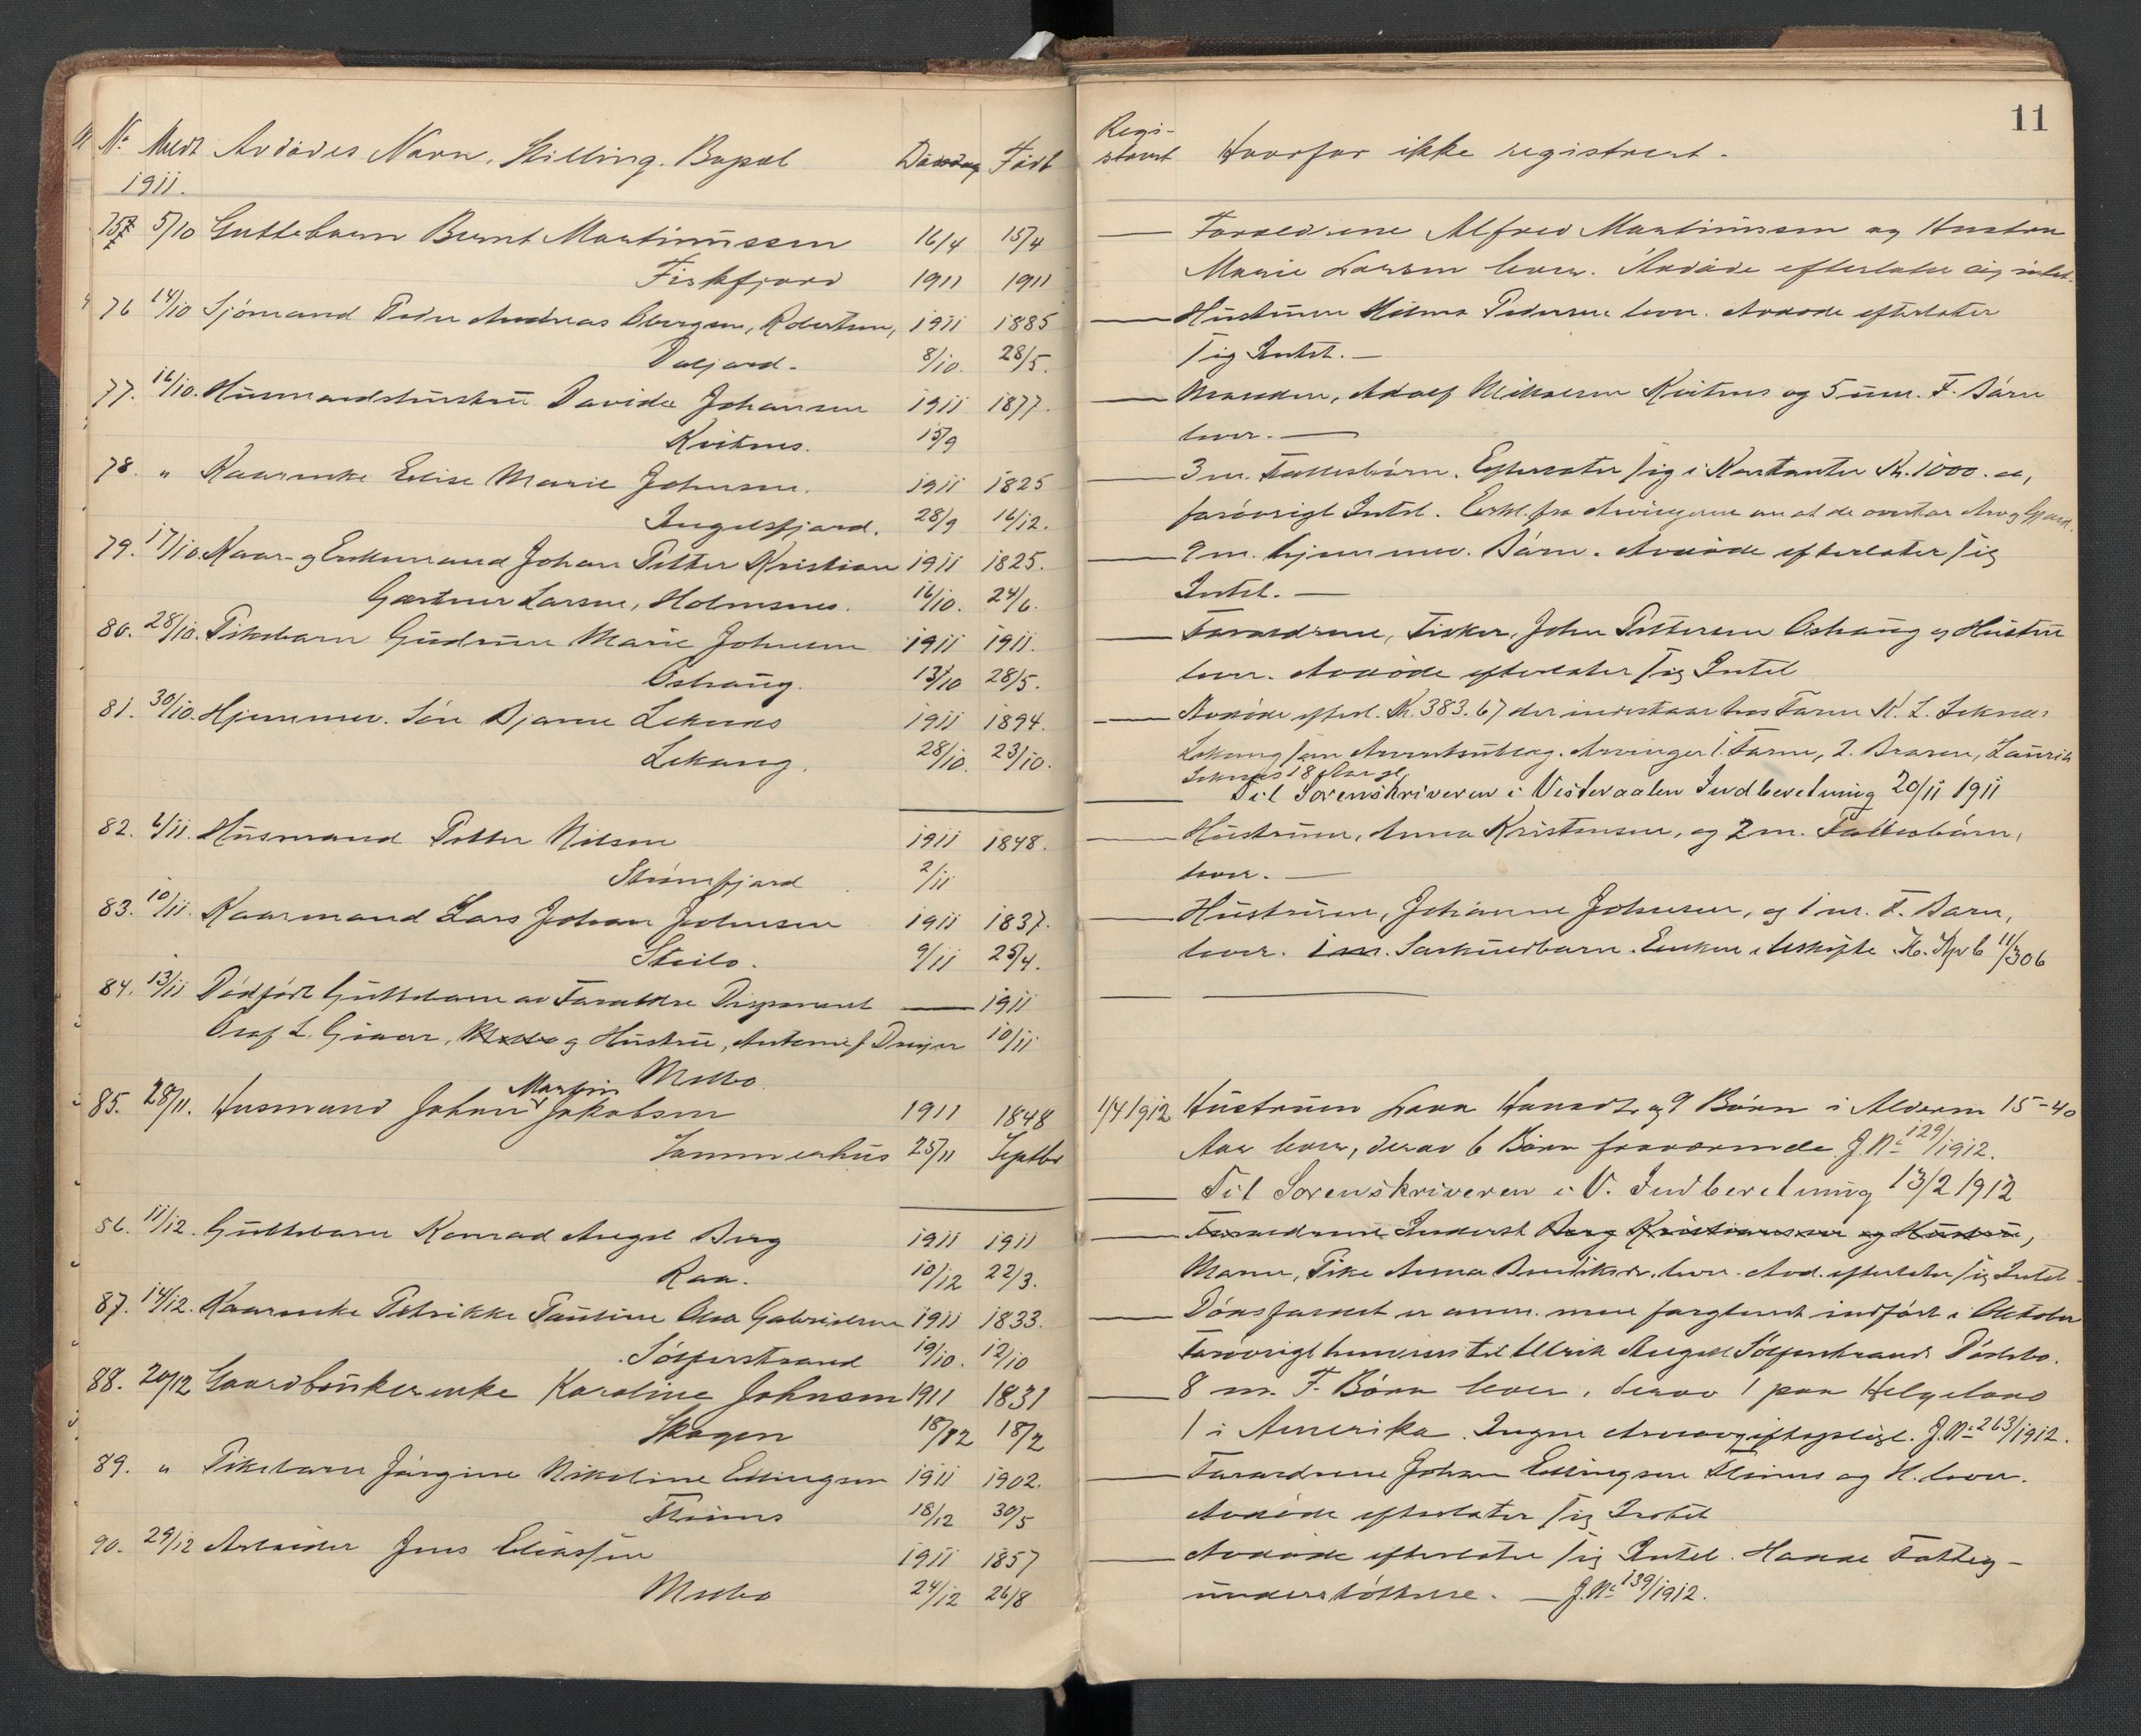 11
No Meldt Avdødes Navn, Stilling. Bopæl Dødsdag Født
1911.
75 5/10 Guttebarn Bernt Martinussen 16/4 15/4
Fiskfjord 1911 1911
76 14/10 Sjømand Peder Andreas Robertsen, 1911 1885
8/10. 28/5.
77. 16/10. Husmandshustru Davida Johansen 1911 1877.
Kvitnes. 15/9
78. " Kaarenke Elise Marie Johnsen. 1911 1825
Ingelsfjord. 28/9 16/12.
79. 17/10. Kaar- og Enkemand Johan Petter Kristian 1911 1825.
Gartner Larsen, Holmsnes. 16/10. 24/6.
80. 28/10. Pikebarn Gudrun Marie Johnsen 1911 1911.
13/10 28/5.
81. 30/10. Hjemmev. Søn Bjarne Leknes 1911 1894.
Lekang. 28/10. 23/10.
82. 6/11. Husmand Petter Nilsen 1911 1848.
Strømfjord 2/11
83. 10/11. Kaarmand Lars Johan Johnsen 1911 1837.
Steilo. 9/11 25/4.
84. 13/11 Dødfødt Guttebarn av Forældre 1911
Olaf L. og Hustru, Antonie J Dreyer 10/11
Melbo
85. 28/11. Husmand Johan Martin Jakobsen 1911 1848
Sommerhus 25/11 Septbr
86. 11/12. Guttebarn Konrad Angel Berg 1911 1911
Raa. 10/12 22/3.
87. 14/12. Kaarenke Petrikke Pauline Gabrielsen 1911 1833.
19/10. 12/10
88. 20/12 Gaardbrukerenke Karoline Johnsen 1911 1831
Skagen 18/12 18/2
89. " Pikebarn Jørgine Nikoline Ellingsen 1911 1902.
18/12 30/5
90. 29/12 Arbeider Jens Eliassen 1911 1857
Melbo 24/12 26/8
Regi-
strert Hvorfor ikke registrert.
Forældrene Alfred Martinussen og Hustru
Marie Larsen lever. Avdøde efterlater sig intet.
Hustruen Hilma Pedersen lever. Avdøde efterlater
sig Intet.
Manden, Adolf Mikalsen Kvitnes og 5 um. F. Børn
lever.
3 m. Fællesbørn. Efterlater sig i Kontanter Kr. 1000.00,
forøvrigt Intet. Erkl. fra Arvingerne om at de overtar Arv og Gjæld.
9 m. hjemmev. Børn. Avdøde efterlater sig
Intet.
Forældrene, Fisker, John Pettersen og Hustru
lever. Avdøde efterlater sig Intet
Avdøde efterl. Kr. 383.67 der indestaar hos Faren K. L. Leknes
Lekang som Arveutlæg. Arvinger 1. Faren, 2. Broren, Laurits
Leknes 18 Aar gl.
Til Sorenskriveren i Vesteraalen Indberetning 20/11 1911
Hustruen, Anna Kristensen, og 2 m. Fællesbørn,
lever.
Hustruen, Johanne Johnsen, og 1 m. F. Barn,
lever. 1 m. Særkuldbarn. Enken i Uskifte
1/4 1912 Hustruen Lava Hansdtr og 9 Børn i Alderen 15-40
Aar lever, derav 6 Børn fraværende. J. No 129/1912.
Til Sorenskriveren i V. Indberetning 13/2 1912
Forældrene Inderst Berg Kristiansen og Hustru,
Moren, Pike Anna Bendiksdr. lever. Avd. efterlater sig Intet
Dødsfaldet er anm. men forglemt indført i Oktober
Forøvrigt henvises til Ulrik Dødsbo.
8 m. F. Børn lever, derav 1 paa Helgeland
1 i Amerika. Ingen Arveavgiftspligt. J. No 263/1912.
Forældrene Johan Ellingsen og H. lever.
Avdøde efterlater sig Intet
Avdøde efterlater sig Intet. Hadde Fattig-
understøttelse. J. No 139/1912.